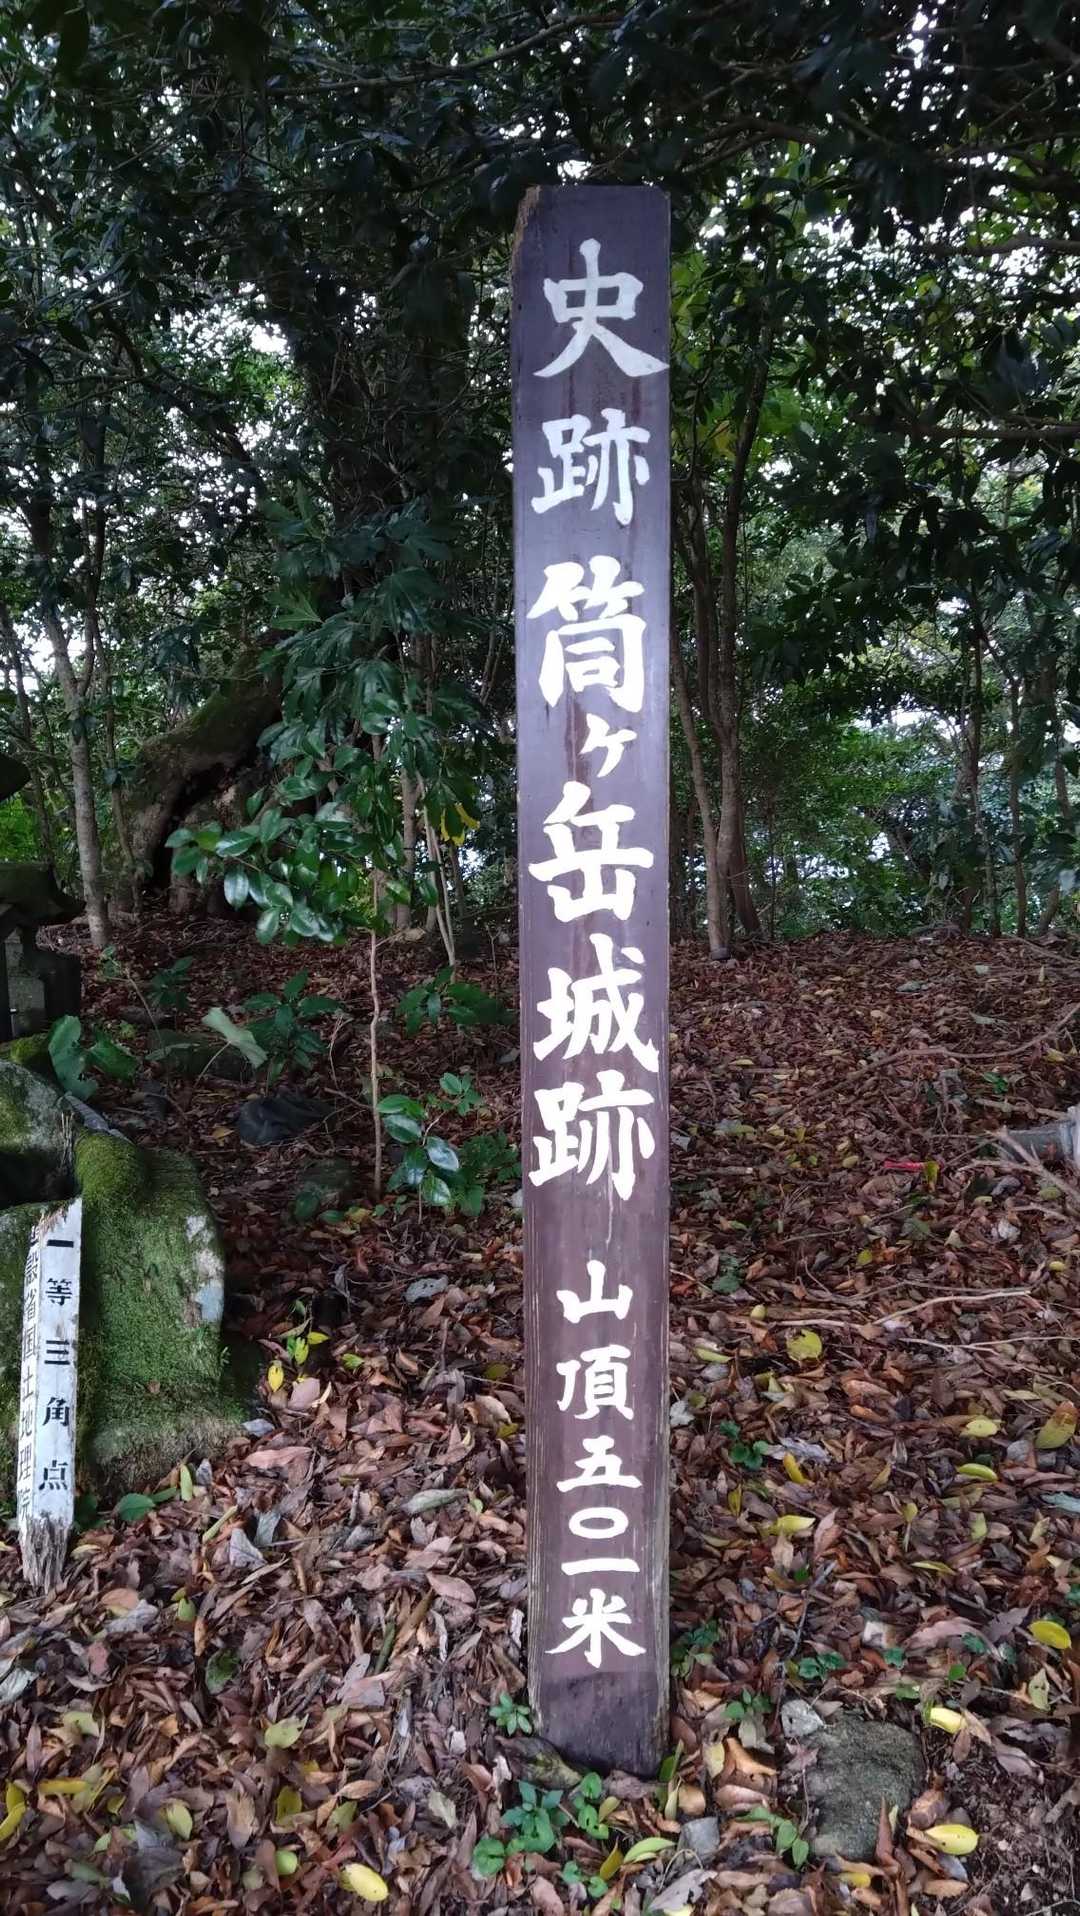 史跡 筒ヶ岳城跡 山頂五〇一米
一等三角点
建設省国土地理院